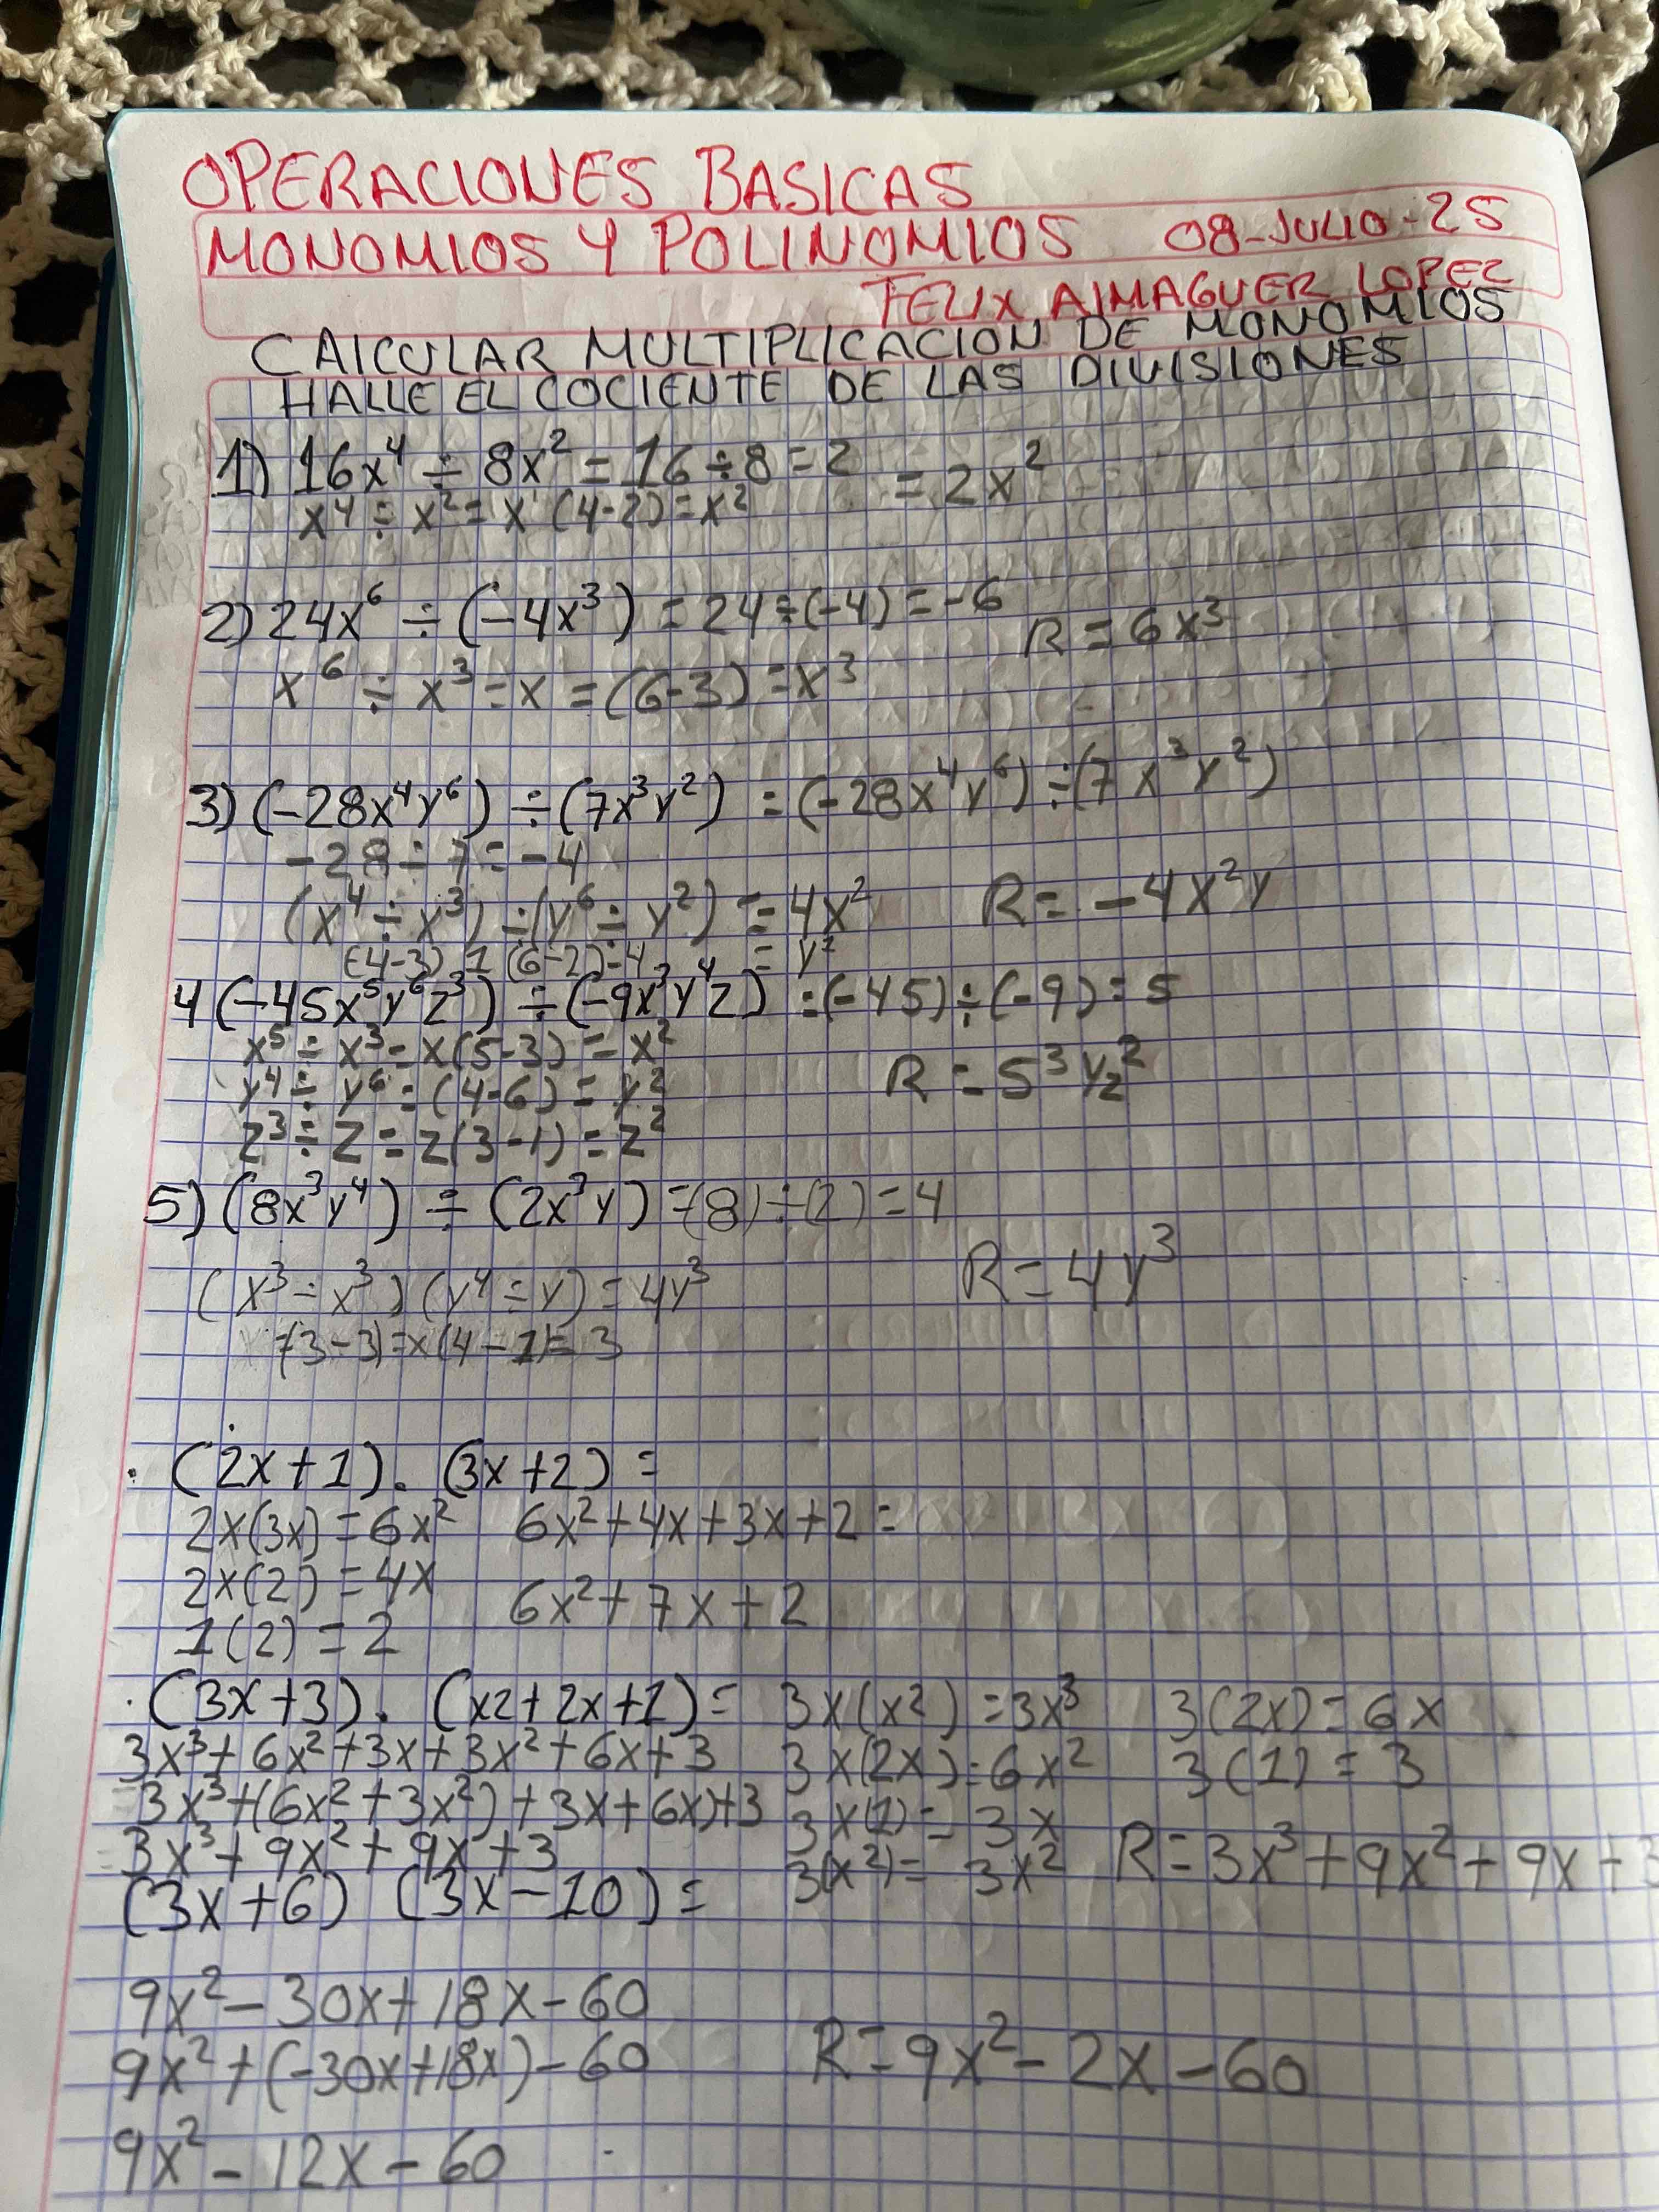 OPERACIONES BASICAS
MONOMIOS Y POLINOMIOS 08-JULIO-25
FELIX AlMAGUER LOPEZ
CAlCULAR MULTIPLICACION DE MONOMIOS
HALLE EL COCIENTE DE LAS DIVISIONES
1) 16x⁴ ÷ 8x² = 16 ÷ 8 = 2 = 2x²
x⁴ ÷ x² = x (4-2) = x²
2) 24x⁶ ÷ (-4x³) = 24 ÷ (-4) = -6 R = 6x³
x⁶ ÷ x³ = x = (6-3) = x³
3) (-28x⁴y⁶) ÷ (7x³y²) = (-28x⁴y⁶) ÷ (7x³y²)
-28 ÷ 7 = -4
(x⁴ ÷ x³) ÷ (y⁶ ÷ y²) = 4x² R = -4x²y
(4-3) 1 (6-2) = 4 = y²
4 (-45x⁵y⁶z³) ÷ (-9x³y⁴z) = (-45) ÷ (-9) = 5
x⁵ ÷ x³ = x (5-3) = x²
R = 5³yz²
y⁴ ÷ y⁶ = (4-6) = y²
z³ ÷ z = z (3-1) = z²
5) (8x³y⁴) ÷ (2x³y) = (8) ÷ (2) = 4
(x³ ÷ x³) (y⁴ ÷ y) = 4y³ R = 4y³
=(3-3) = x (4-1) = 3
. (2x+1) . (3x+2) =
2x(3x) = 6x² 6x²+4x+3x+2 =
2x(2) = 4x
6x²+7x+2
1(2) = 2
. (3x+3) . (x2+2x+1) = 3x(x²) = 3x³ 3(2x) = 6x
3x³+6x²+3x+3x²+6x+3 3x(2x) = 6x² 3(1) = 3
3x³+(6x²+3x²)+3x+6x)+3 3x(1) = 3x
3x³+9x²+9x+3 3(x²) = 3x² R = 3x³+9x²+9x+3
(3x+6) (3x-10) =
9x²-30x+18x-60
9x²+(-30x+18x)-60 R = 9x²-2x-60
9x²-12x-60